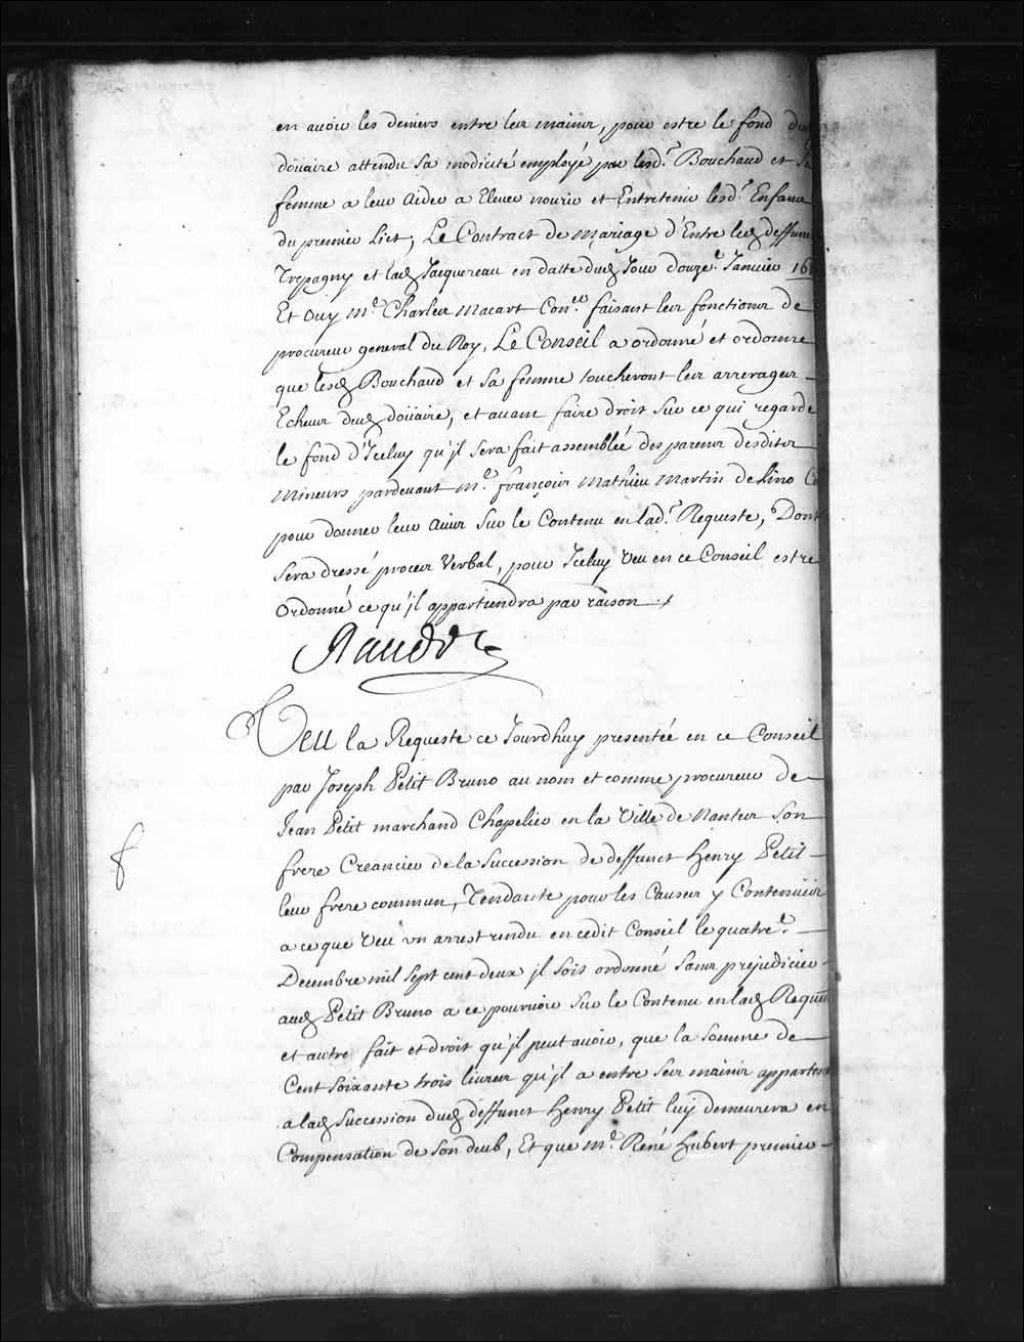 en avoir les deniers entre leurs mains, pour estre le fond du
doüaire attendu sa modicité employé par lesd.s Bouchard et sa
femme a leur aider a Elever nourir et Entretenir lesd.s Enfans
du premier lict, Le Contract de mariage d'Entre led deffunct
Trepagny et lad Jacquereau en datte dud Jour douze.e Janvier
Et Ouy M.e Charles Macart Con.er faisant les fonctions de
procureur general du Roy, Le Conseil a ordonné et ordonne
que lesd Bouchard et sa femme toucheront les arrerages
Echeus dud doüaire, et avant faire droit sur ce qui regarde
le fond d'Iceluy qu'jl sera fait assemblée des parens desdits
Mineurs pardevant M.e françois Mathieu Martin de Lino
pour donner leur avis sur le Contenu en lad.e Requeste, Dont
sera dressé procez Verbal, pour Iceluy Veu en ce Conseil estre
Ordonné ce qu'jl appartiendra par raison ./.
Raudot
Veu la Requeste ce Jourdhuy presentée en ce Conseil
par Joseph Petit Bruno au nom et comme procureur de
Jean Petit marchand Chapelier en la Ville de Nantes son
frere Creancier de la succession de deffunct Henry Petit
leur frere commun, Tendante pour les Causes y Contenües
a ce que Veu vn arrest rendu en cedit Conseil le quatre.e
Decembre mil sept cent deux jl soit ordonné sans prejudicier
aud Petit Bruno a ce pourvoir sur le Contenu en lad Requeste
et autre fait et droit qu'jl peut avoir, que la somme de
Cent soixante trois livres qu'jl a entre ses mains
a lad succession dud deffunct Henry Petit luy demeurera en
Compensation de son deub, Et que M.e René Hubert premier